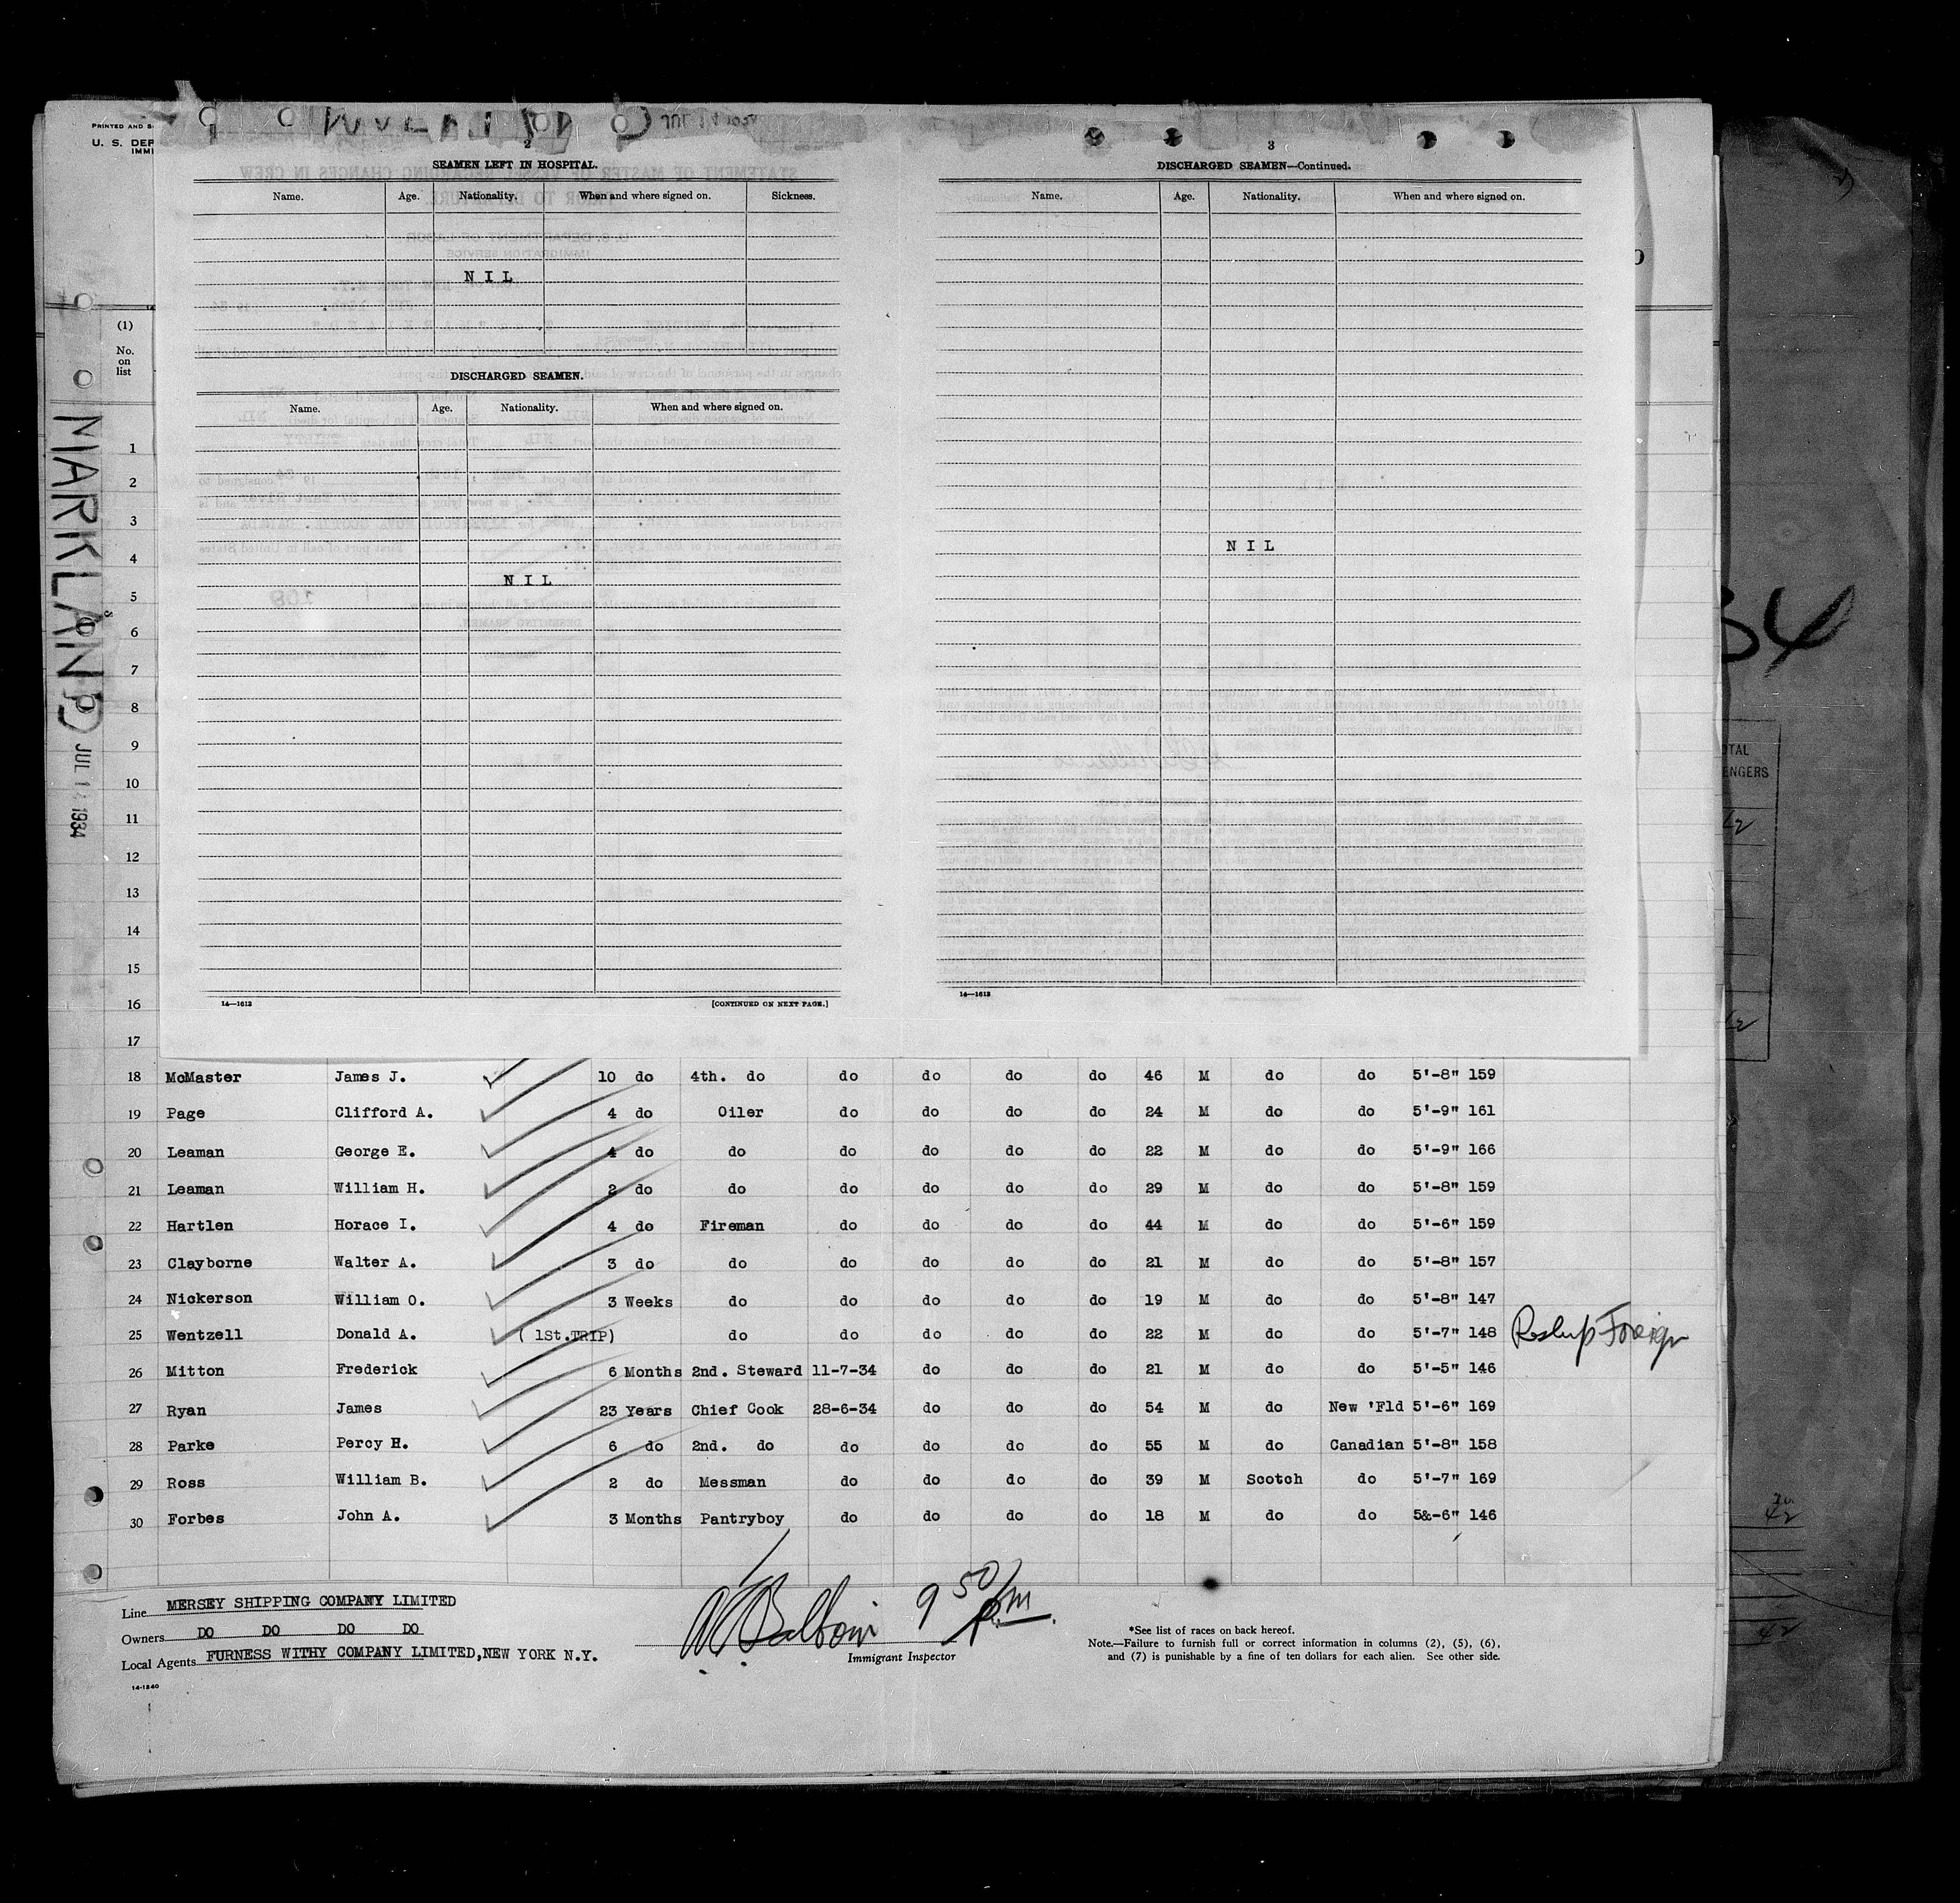 PRINTED AND S
U. S. DEP
IMMI
(1)
No.
on
list
MARKLAND
JUL 1 1934
2
SEAMEN LEFT IN HOSPITAL.
Name. Age. Nationality. When and where signed on. Sickness.
NIL
DISCHARGED SEAMEN.
Name. Age. Nationality. When and where signed on.
NIL
14—1613 [CONTINUED ON NEXT PAGE.]
3
DISCHARGED SEAMEN—Continued.
Name. Age. Nationality. When and where signed on.
NIL
14—1613
34
OTAL
ENGERS
1
2
3
4
5
6
7
8
9
10
11
12
13
14
15
16
17
18 McMaster James J. 10 do 4th. do do do do do 46 M do do 5'-8" 159
19 Page Clifford A. 4 do Oiler do do do do 24 M do do 5'-9" 161
20 Leaman George E. 4 do do do do do do 22 M do do 5'-9" 166
21 Leaman William H. 2 do do do do do do 29 M do do 5'-8" 159
22 Hartlen Horace I. 4 do Fireman do do do do 44 M do do 5'-6" 159
23 Clayborne Walter A. 3 do do do do do do 21 M do do 5'-8" 157
24 Nickerson William O. 3 Weeks do do do do do 19 M do do 5'-8" 147
25 Wentzell Donald A. (1St.TRIP) do do do do do 22 M do do 5'-7" 148 Foreign
26 Mitton Frederick 6 Months 2nd. Steward 11-7-34 do do do 21 M do do 5'-5" 146
27 Ryan James 23 Years Chief Cook 28-6-34 do do do 54 M do New 'Fld 5'-6" 169
28 Parke Percy H. 6 do 2nd. do do do do do 55 M do Canadian 5'-8" 158
29 Ross William B. 2 do Messman do do do do 39 M Scotch do 5'-7" 169
30 Forbes John A. 3 Months Pantryboy do do do do 18 M do do 5&-6" 146
Line MERSEY SHIPPING COMPANY LIMITED
Owners DO DO DO DO
Local Agents FURNESS WITHY COMPANY LIMITED,NEW YORK N.Y.
14-1240
9 50 pm
Immigrant Inspector
*See list of races on back hereof.
Note.—Failure to furnish full or correct information in columns (2), (5), (6),
and (7) is punishable by a fine of ten dollars for each alien. See other side.